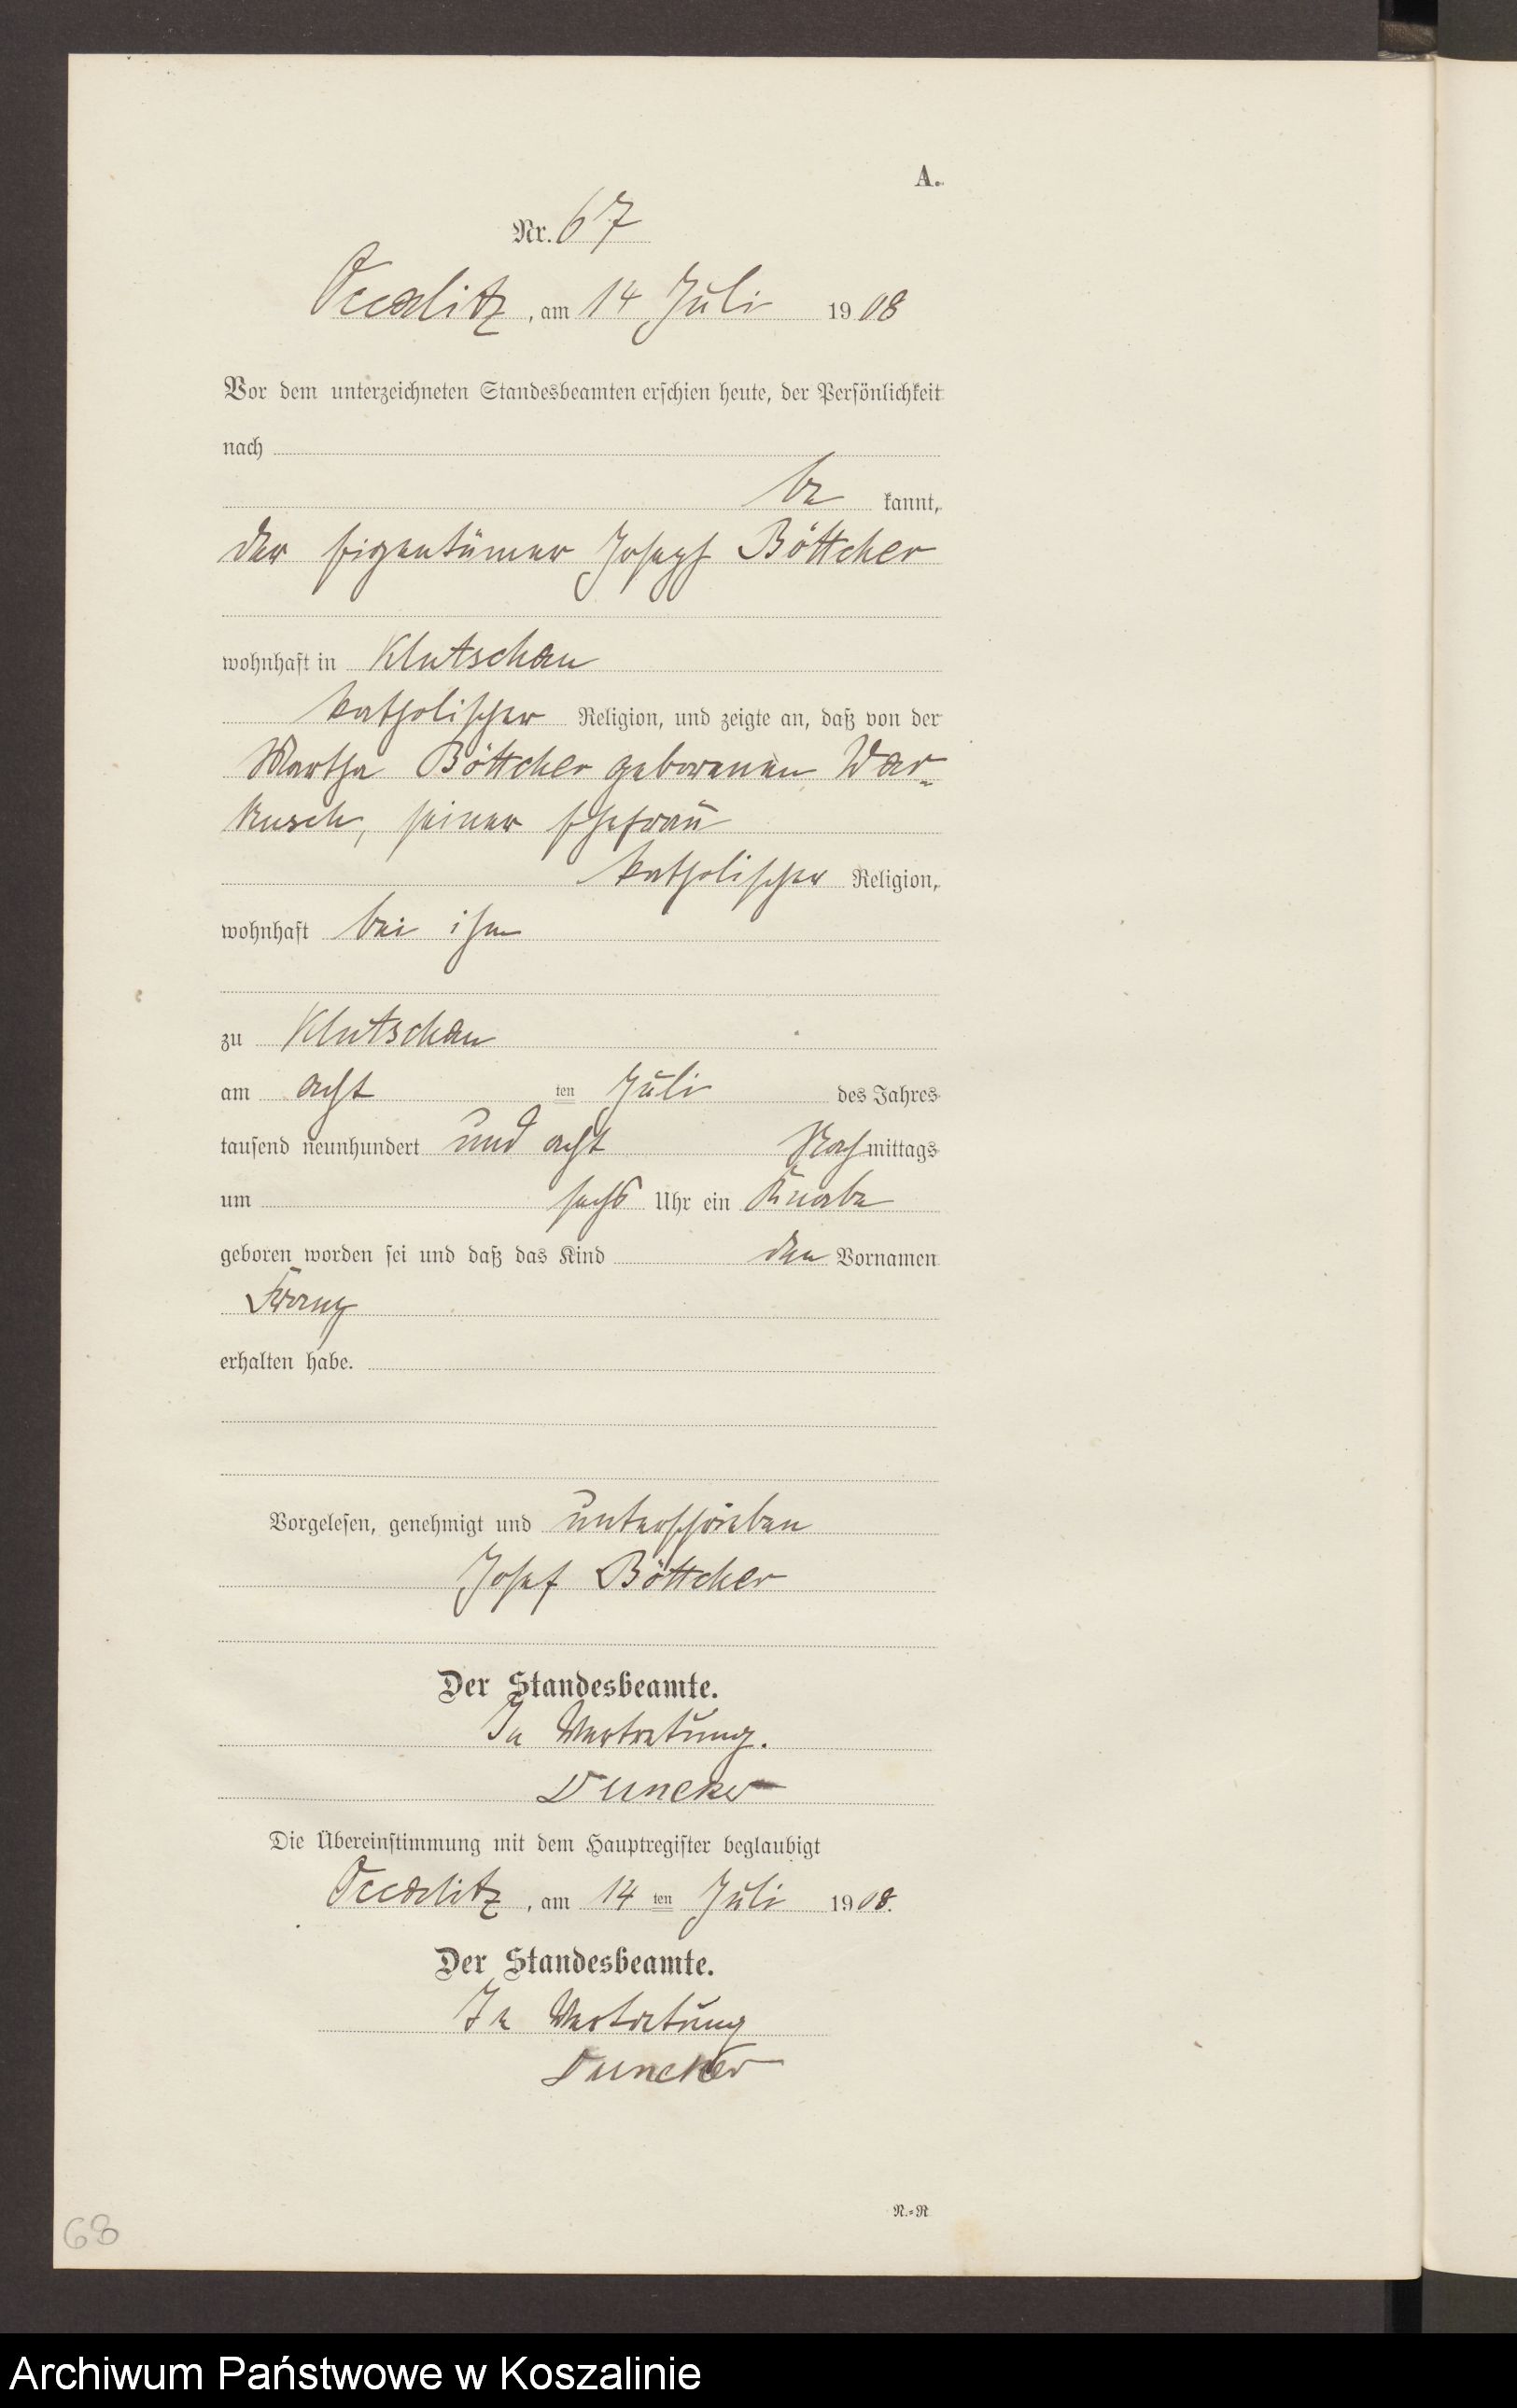 A.
Nr. 67
Occalitz, am 14 Juli 1908
Vor dem unterzeichneten Standesbeamten erschien heute, der Persönlichkeit
nach
be kannt,
der Eigentümer Joseph Böttcher
wohnhaft in Klutschau
katholischer Religion, und zeigte an, daß von der
Martha Böttcher geborenen War-
kusch, seiner Ehefrau
katholischer Religion,
wohnhaft bei ihm
zu Klutschau
am acht ten Juli des Jahres
tausend neunhundert und acht Nachmittags
um sechs Uhr ein Knabe
geboren worden sei und daß das Kind den Vornamen
Franz
erhalten habe.
Vorgelesen, genehmigt und unterschrieben
Josef Böttcher
Der Standesbeamte.
In Vertretung.
Duncker
Die Übereinstimmung mit dem Hauptregister beglaubigt
Occalitz, am 14 ten Juli 1908.
Der Standesbeamte.
In Vertretung
Duncker
N.=R
68
Archiwum Państwowe w Koszalinie